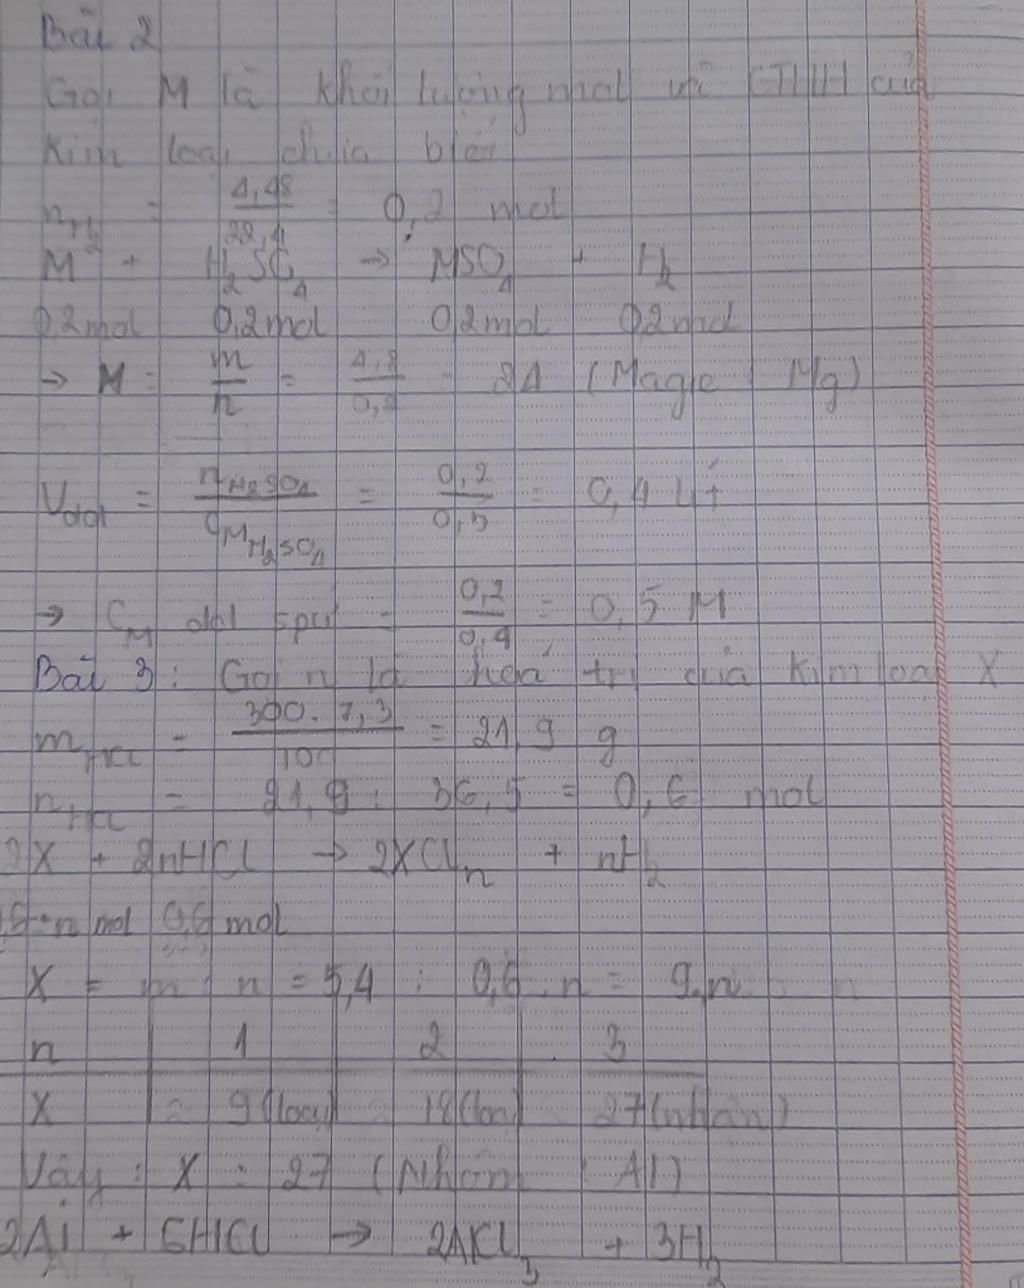 Bài 2
Gọi M là khối lượng mol và CTHH của
kim loại chưa biết
n H₂ = 4,48/22,4 = 0,2 mol
M + H₂SO₄ → MSO₄ + H₂
0,2mol 0,2mol 0,2mol 0,2mol
→ M = m/n = 4,8/0,2 = 24 (Magie Mg)
Vdd = nH₂SO₄/CM H₂SO₄ = 0,2/0,5 = 0,4 lít
→ CM dd spư = 0,2/0,4 = 0,5 M
Bài 3: Gọi n là hoá trị của kim loại X
mHCl = 300.7,3/100 = 21,9 g
nHCl = 21,9 : 36,5 = 0,6 mol
2X + 2nHCl → 2XCln + nH₂
mol 0,6 mol
X = m : n = 5,4 : 0,6 . n = 9.n
n 1 2 3
X = 9(loại) 18(loại) 27(nhận)
Vậy : X : 27 (Nhôm : Al)
2Al + 6HCl → 2AlCl₃ + 3H₂